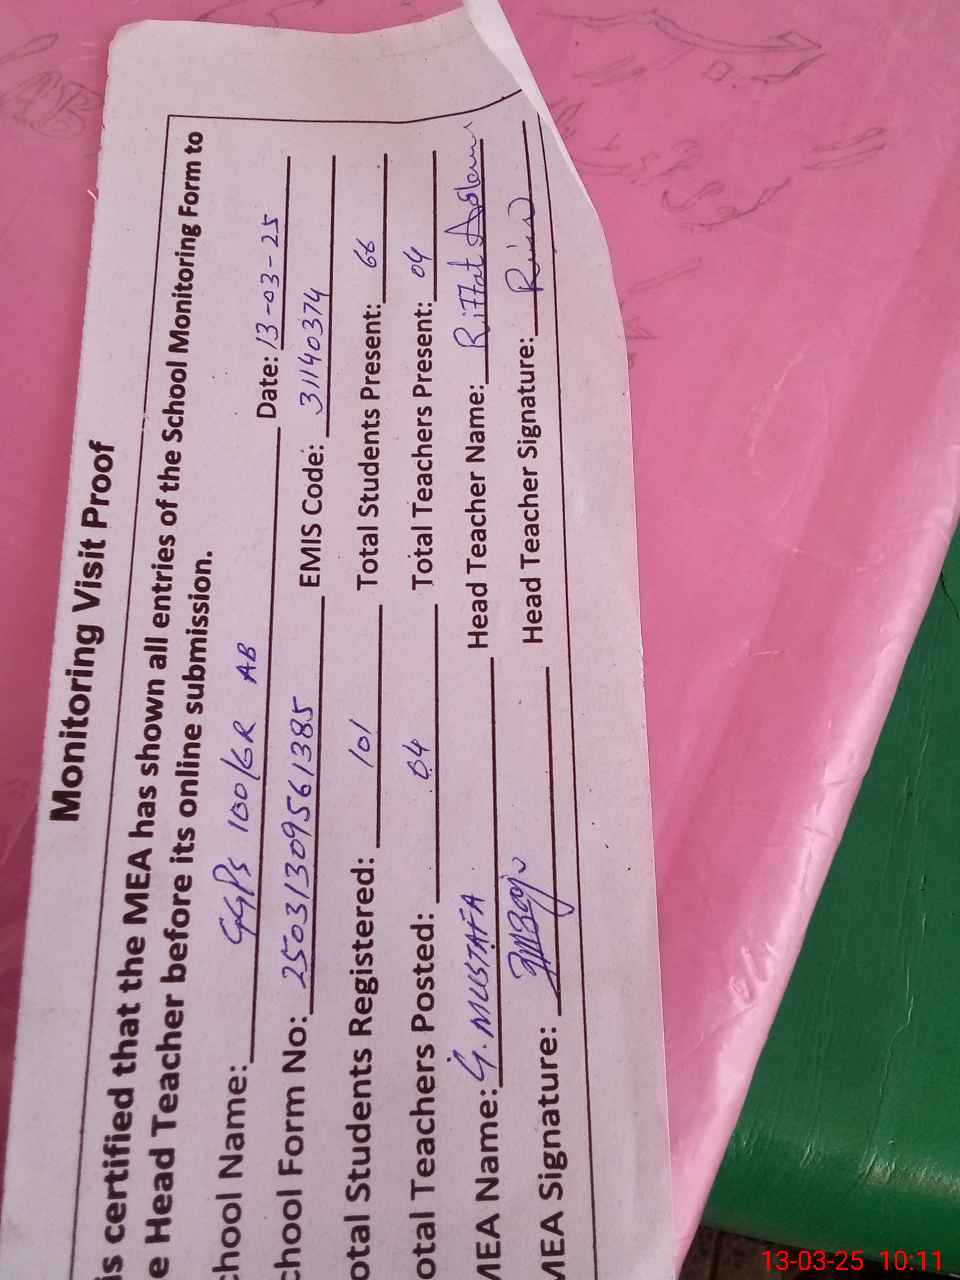 Monitoring Visit Proof
is certified that the MEA has shown all entries of the School Monitoring Form to
e Head Teacher before its online submission.
chool Name: GGPS 100/GR AB Date: 13-03-25
chool Form No: 25031309561385 EMIS Code: 31140374
otal Students Registered: 101 Total Students Present: 66
otal Teachers Posted: 04 Total Teachers Present: 04
MEA Name: G. MUSTAFA Head Teacher Name: Riffat Aslam
MEA Signature: Head Teacher Signature:
13-03-25 10:11